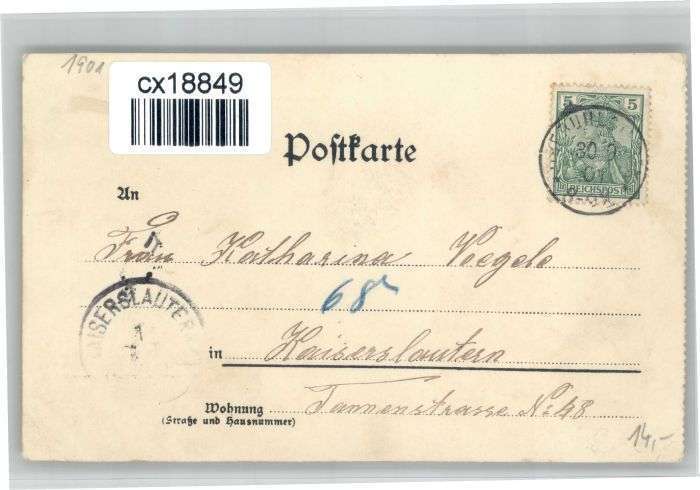 1901
cx18849
5 5
30
01
REICHSPOST
Postkarte
An
Frau Katharina Voegele
68
ISERSLAUTER
1
in Kaiserslautern
Wohnung Tannenstrasse No 48
(Straße und Hausnummer)
14,-